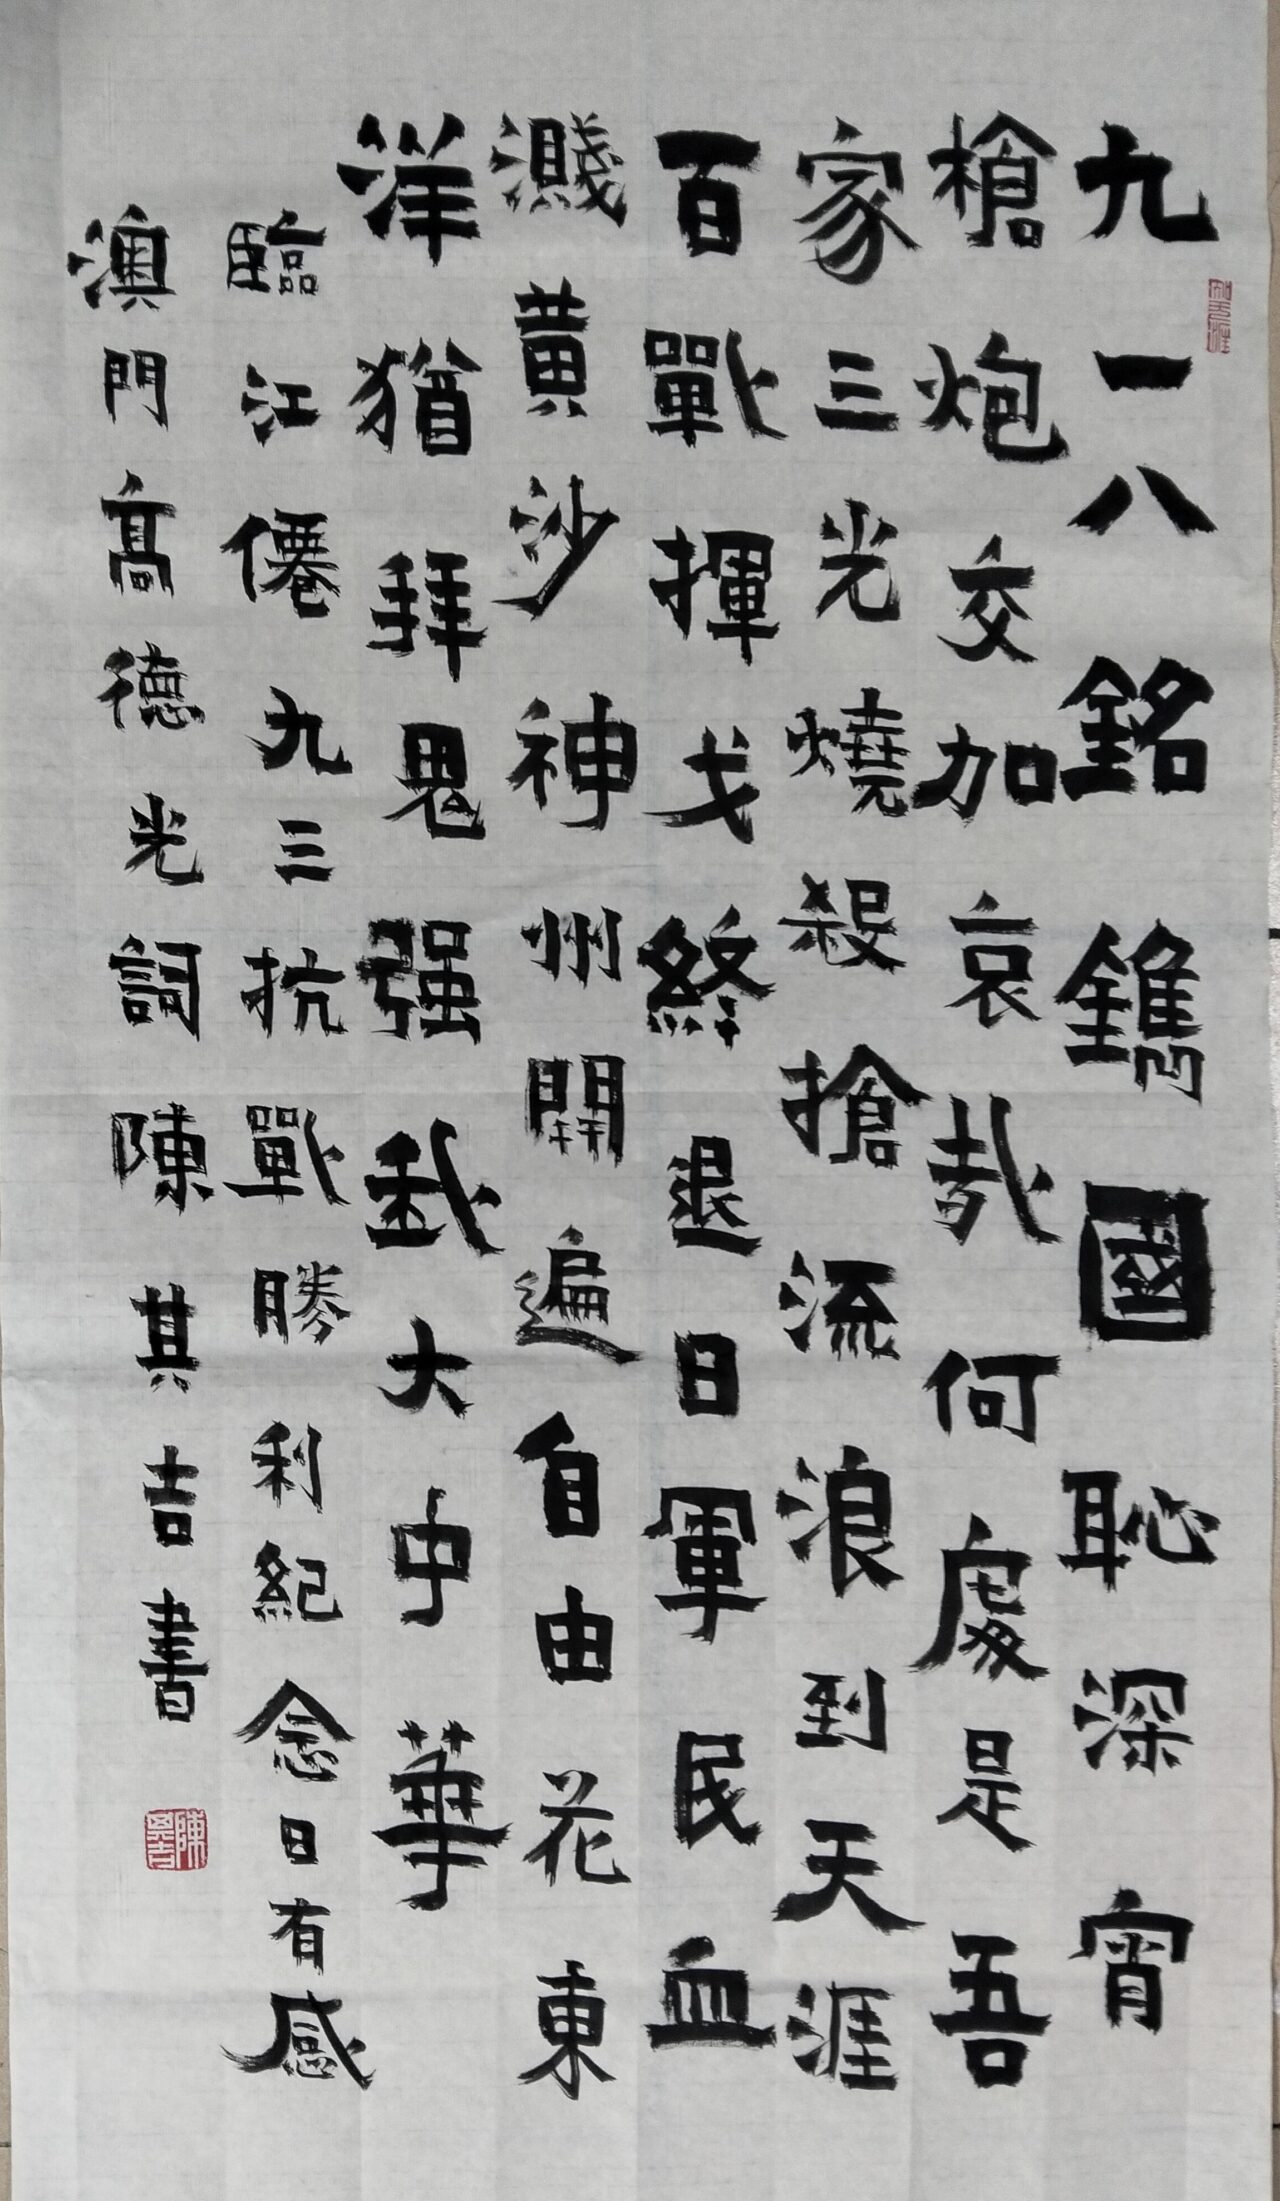 九一八銘鐫國恥深宵
槍炮交加哀哉何處是吾
家三光燒殺搶流浪到天涯
百戰揮戈終退日軍民血
濺黃沙神州開遍自由花東
洋猶拜鬼强我大中華
臨江僊九三抗戰勝利紀念日有感
澳門髙德光詞陳其吉書
陳其吉